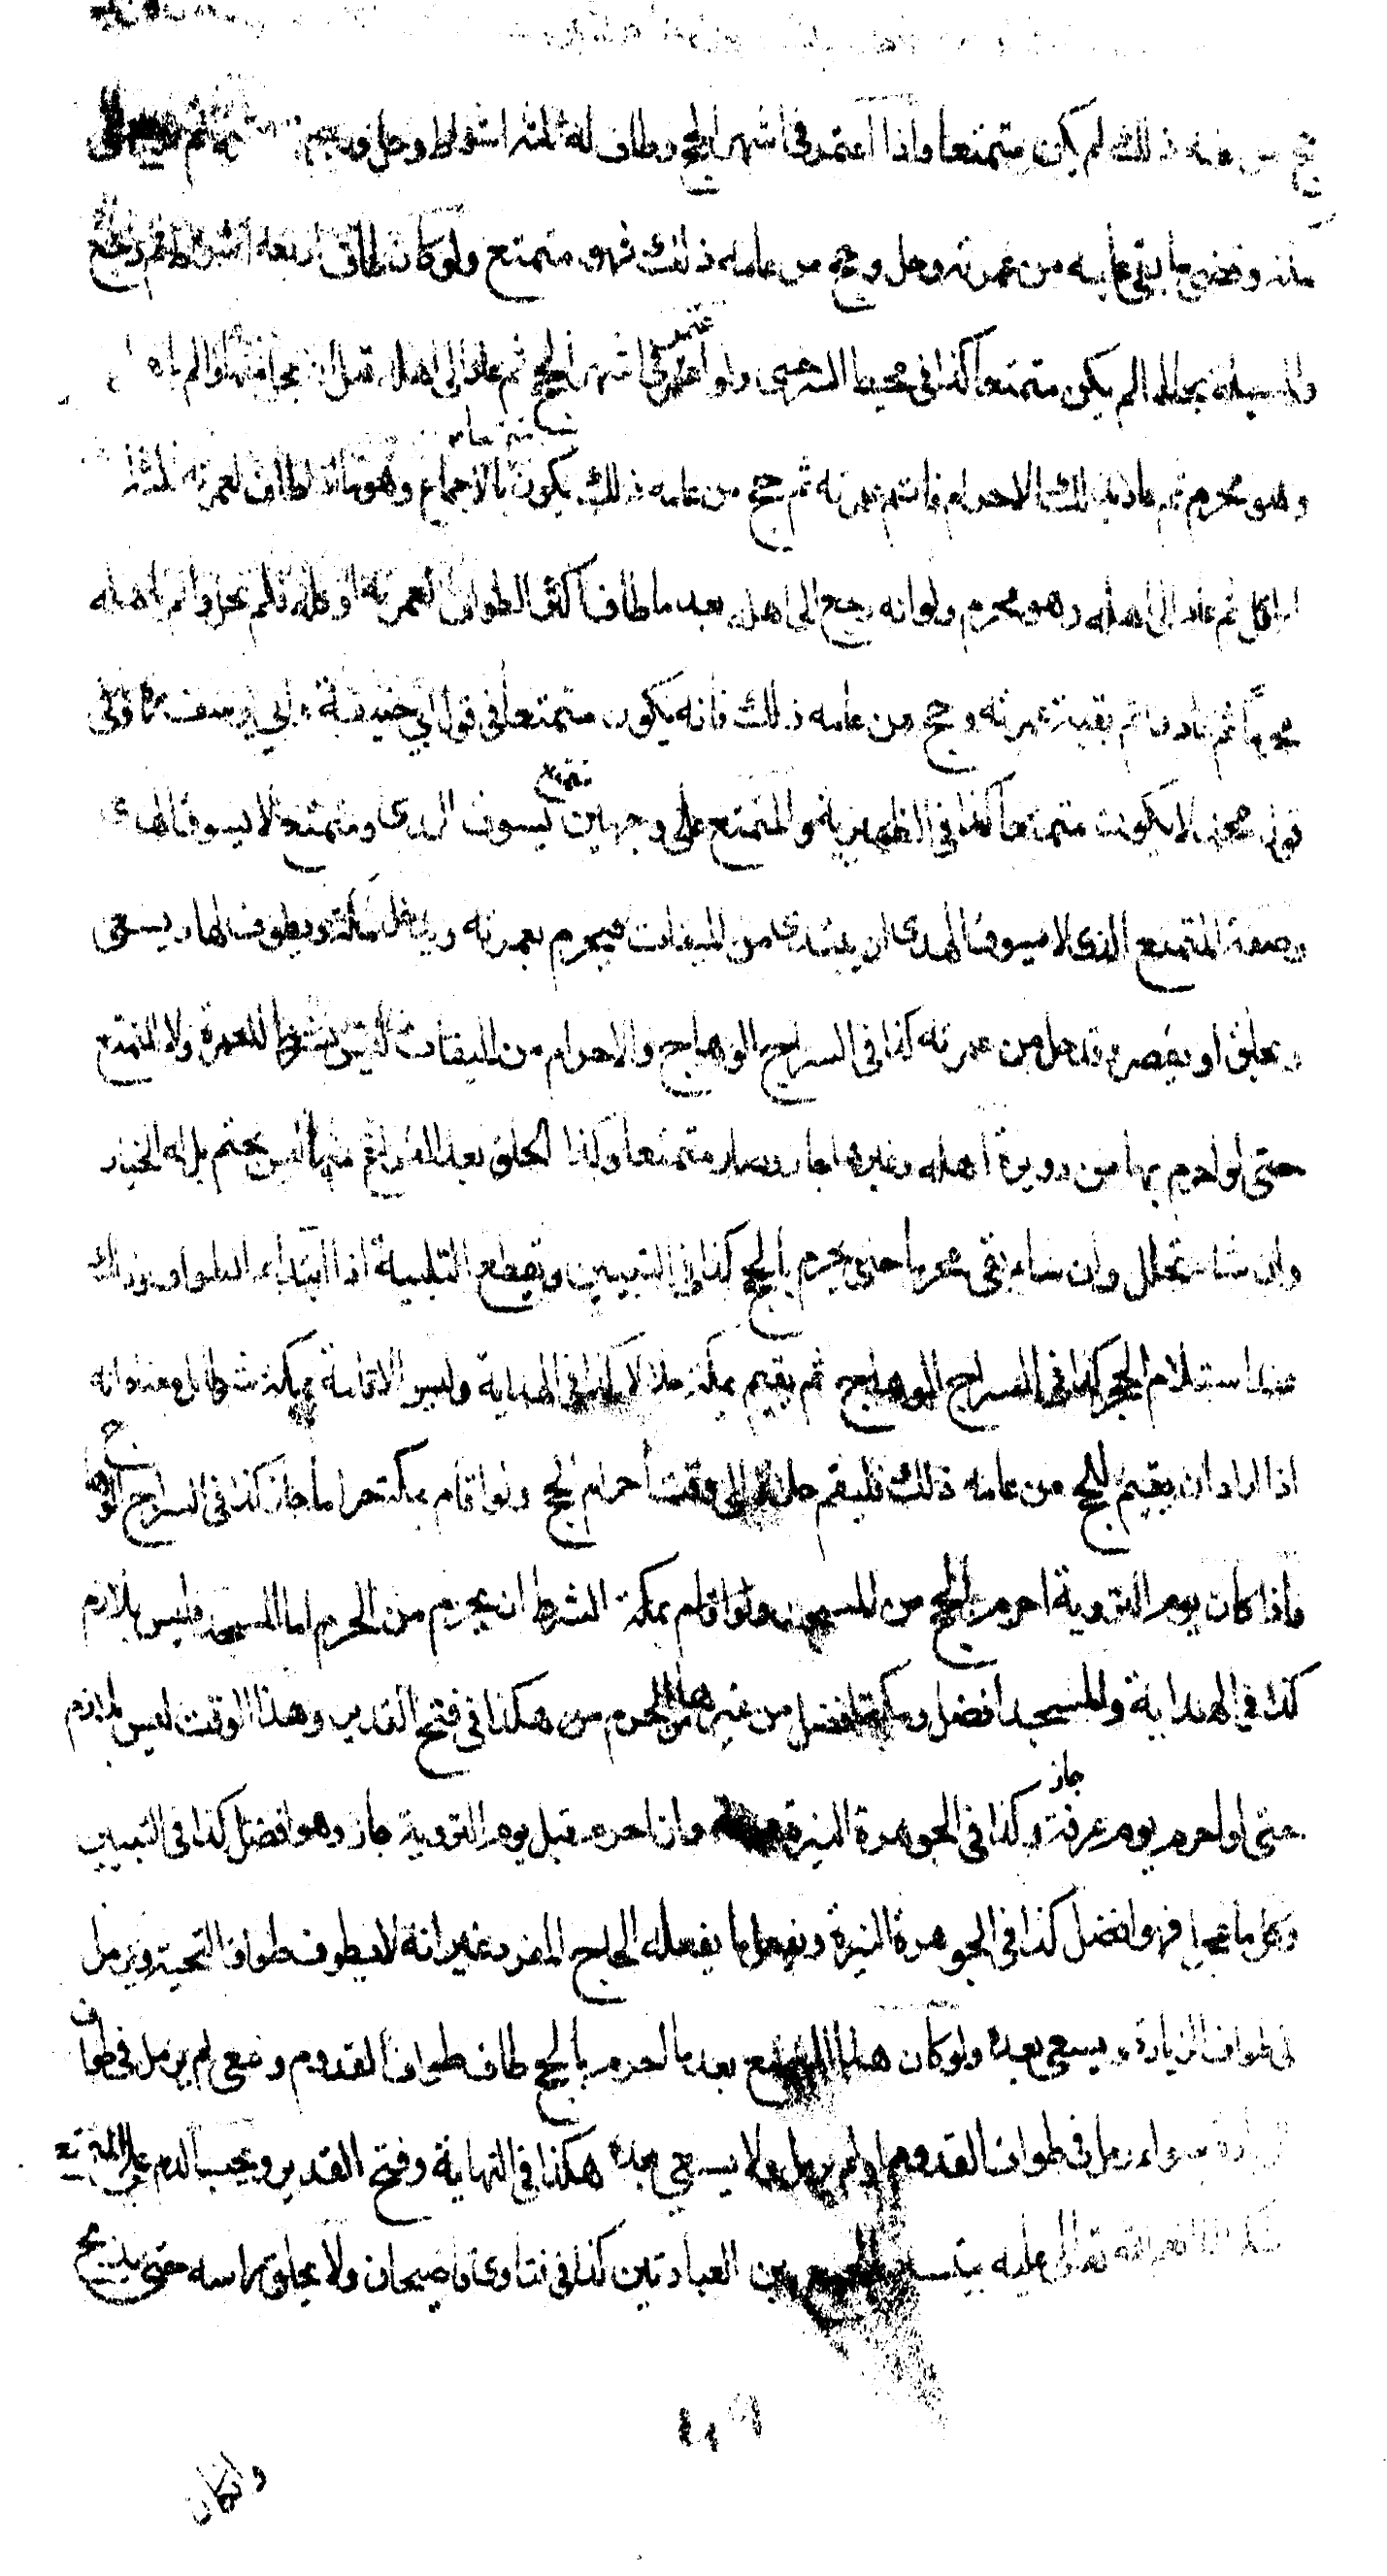 حج من عامه ذلك لم يكن متمتعا واذا اعتمر في اشهر الحج وطاف له ثلثه اشواط وحل ورجع ثم
مكة وقضى ما بقي عليه من عمرته وحل وحج من عامه ذلك فهو متمتع ولو كان طاف اربعة اشواط ثم رجع
والمسيلة بحالها لم يكن متمتعا كذا في محيط السرخسي ولو اعتمر في اشهر الحج ثم عاد الى اهله قبل ان يحل منها والم باهله
وهو محرم ثم عاد بذلك الاحرام فاتم عمرته ثم حج من عامه ذلك يكون متمتعا بالاجماع وهو ما اذا طاف لعمرته ثلثة
او اقل ثم عاد الى اهله وهو محرم ولو انه رجع الى اهله بعد ما طاف اكثر الطواف لعمرته او كله فلم يحل والم باهله
محرما ثم عاد واتم بقية عمرته وحج من عامه ذلك فانه يكون متمتعا في قول ابي حنيفة وابي يوسف وفي
قول محمد لا يكون متمتعا كذا في الظهيرية والمتمتع على وجهين متمتع يسوق الهدى ومتمتع لا يسوق الهدى
وصفة المتمتع الذي لا يسوق الهدى ان يبتدئ من الميقات فيحرم بعمرته ويدخل مكة ويطوف لها ويسعى
ويحلق او يقصر وقد حل من عمرته كذا في السراج الوهاج والاحرام من الميقات ليس بشرط للعمرة ولا للتمتع
حتى لو احرم بها من دويرة اهله وغيرها جاز وصار متمتعا وكذا الحلق بعد الفراغ منها ليس بحتم بل له الخيار
وان شاء تحلل وان شاء بقي محرما حتى يحرم بالحج كذا في التبيين ويقطع التلبية اذا ابتداء الطواف وذلك
عند استلام الحجر كذا في السراج الوهاج ثم يقيم بمكة حلالا كذا في الهداية وليس الاقامة بمكة شرطا بل معناه انه
اذا اراد ان يقيم للحج من عامه ذلك فليقم حلالا الى وقت احرام الحج ولو اقام بمكة حراما جاز كذا في السراج الوهاج
فاذا كان يوم التروية احرم بالحج من المسجد ولو اقام بمكة الشرط ان يحرم من الحرم اما المسجد فليس بلازم
كذا في الهداية والمسجد افضل ومكة افضل من غيرها من الحرم من هكذا في فتح القدير وهذا الوقت ليس بلازم
حتى لو احرم يوم عرفة جاز وكذا في الجوهرة النيرة وان احرم قبل يوم التروية جاز وهو افضل كذا في التبيين
وكل ما عجل فهو افضل كذا في الجوهرة النيرة ويفعل ما يفعله الحاج المفرد غير انه لا يطوف طواف التحية ويرمل
في طواف الزيارة ويسعى بعده ولو كان هذا المتمتع بعد ما احرم بالحج طاف طواف القدوم وسعى لم يرمل في طواف
الزيارة سواء رمل في طواف القدوم او لم يرمل ولا يسعى بعده هكذا في النهاية وفتح القدير ويجب الدم على المتمتع
شكرا لما انعم الله تعالى عليه بتيسير الجمع بين العبادتين كذا في فتاوى قاضيخان ولا يحلق راسه حتى يذبح